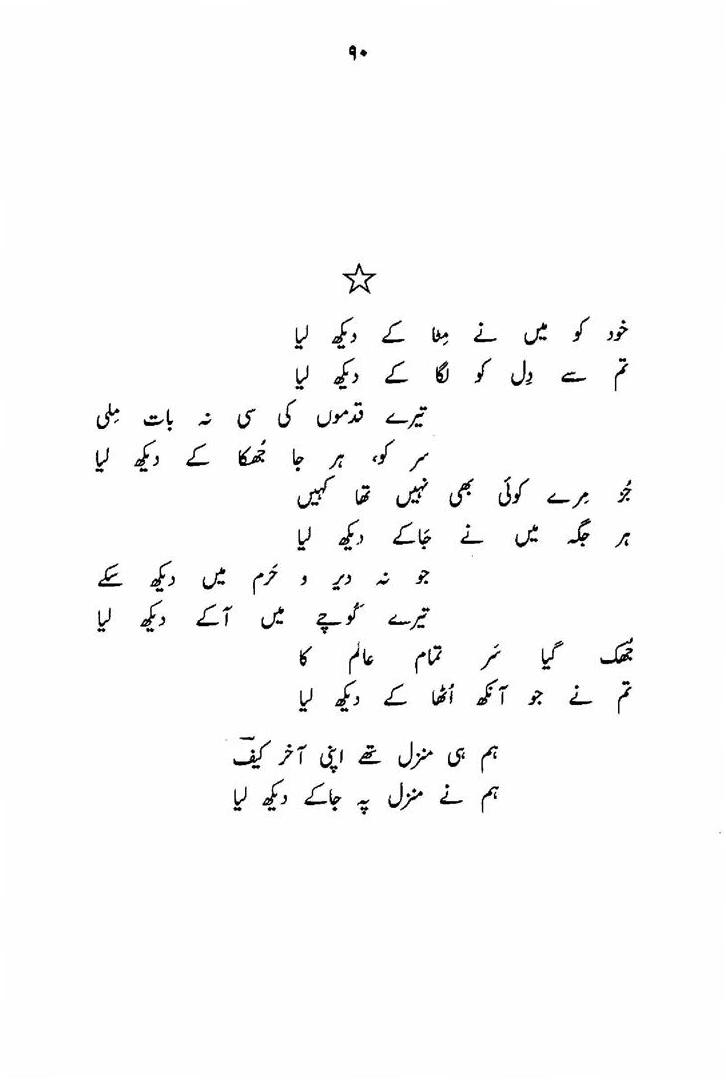 ۹۰
خود کو میں نے مِٹا کے دیکھ لیا
تم سے دِل کو لگا کے دیکھ لیا
تیرے قدموں کی سی نہ بات مِلی
سر کو، ہر جا جُھکا کے دیکھ لیا
جُز مِرے کوئی بھی نہیں تھا کہیں
ہر جگہ میں نے جَاکے دیکھ لیا
جو نہ دیر و حَرم میں دیکھ سکے
تیرے کُوچے میں آکے دیکھ لیا
جُھک گیا سَر تمام عالم کا
تم نے جو آنکھ اُٹھا کے دیکھ لیا
ہم ہی منزل تھے اپنی آخر کیفؔ
ہم نے منزل پہ جاکے دیکھ لیا